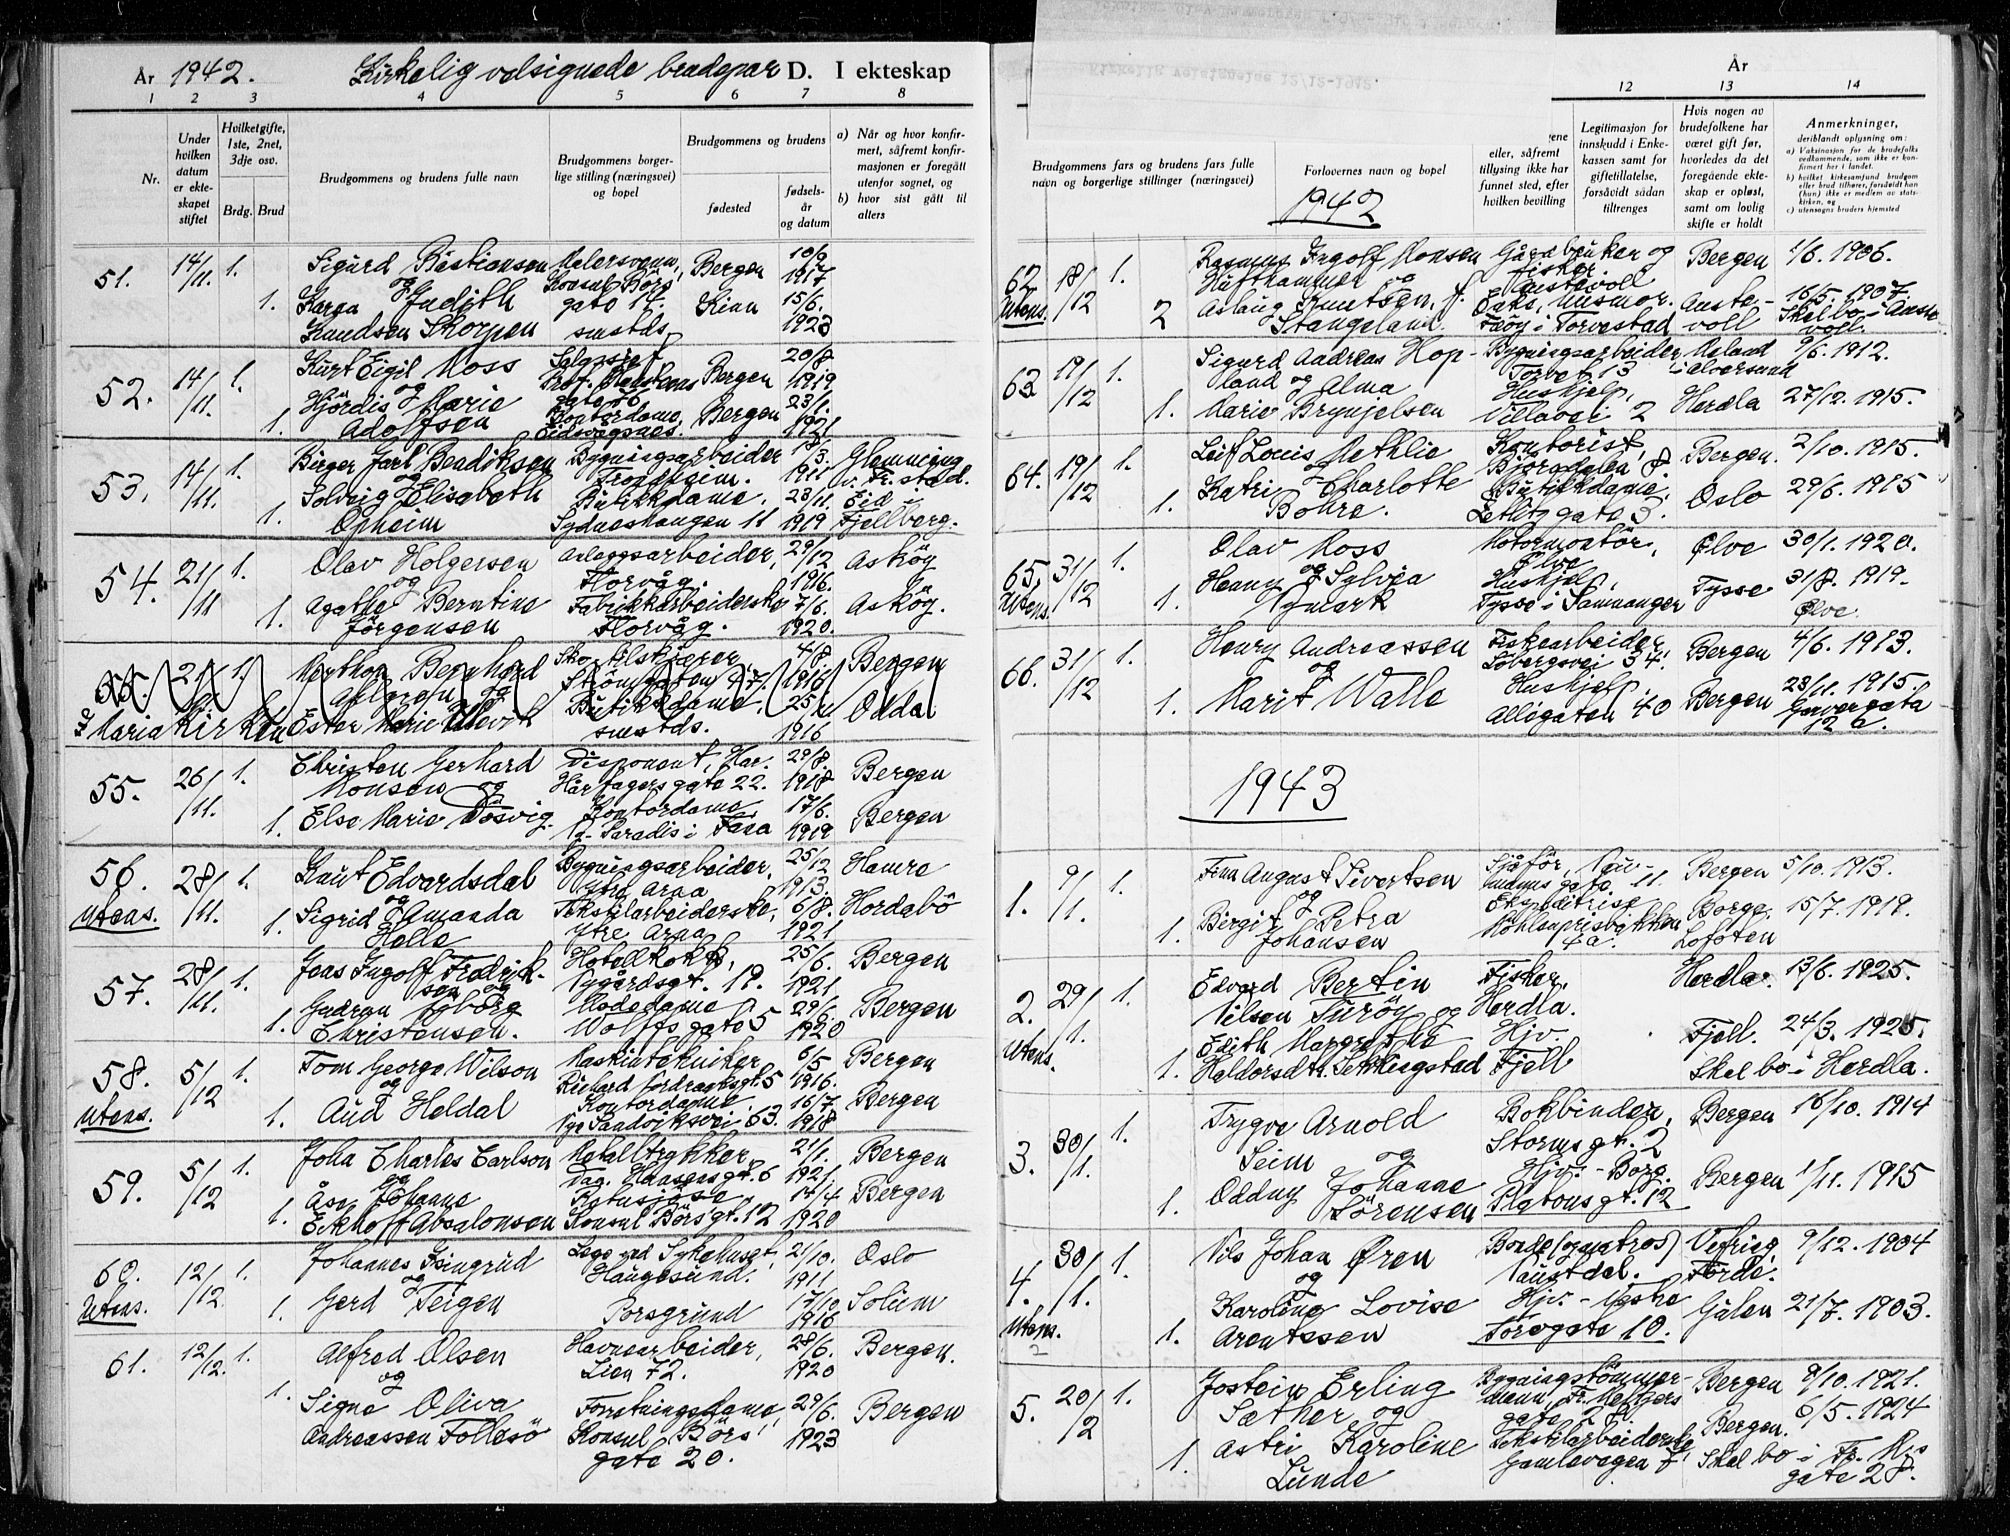 År 1942. Kirkelig velsignede brudepar D. I ekteskap
1 2 3 4 5 6 7 8
Nr.
Under hvilken datum er ekteskapet stiftet
Hvilket gifte, 1ste, 2net, 3dje osv.
Brdg. Brud
Brudgommens og brudens fulle navn
Brudgommens borgerlige stilling (næringsvei) og bopel
Brudgommens og brudens
fødested
fødselsår og datum
a) Når og hvor konfirmert, såfremt konfirmasjonen er foregått utenfor sognet, og
b) hvor sist gått til alters
51. 14/11. 1. Sigurd Bastiansen Malersvenn, Bergen 10/9 1917
og Konsul Börs
1. Karen Judith gate 14. Kinn 15/6.
Knudsen Skorpen smstds. 1923
52. 14/11. 1. Kurt Eigil Moss Bergen 20/8 1919
og
1. Hjördis Marie Kontordame, Bergen 23/1.
Adolfsen Eidsvågsnes. 1921
53. 14/11. 1. Birger Jarl Bendiksen Bygningsarbeider 1911 Glemminge
og Trondheim. v. Fr.stad.
1. Solveig Elisabeth Butikkdame, 23/11. Eid
Opheim Sydneshaugen 11 1919 Fjellberg.
54. 21/11 1. Olav Holgersen Anleggsarbeider, 29/12 Asköy
og Florvåg. 1916.
1. Agathe Berntine Fabrikkarbeiderske 7/6. Asköy.
Jörgensen Florvåg. 1920.
55. 21/ 1. Bernhard 4/8. Bergen
og Strömgaten 1916
Maria Kirken Ester Marie Butikkdame, 25/ Odda
smstds. 1916
55. 26/11. 1. Christen Gerhard Disponent, Har. 29/8. Bergen
Monsen og Hårfagersgate 22. 1918
1. Else Marie Døsvig. Kontordame 17/6. Bergen
Paradis i Fana 1919
56. 28/11. 1. Knut Edvardsdal Bygningsarbeider, 25/12 Hamre
og Ytre Arna 1913.
utens. 1. Sigrid Amanda Tekstilarbeiderske, 6/8. Hordabö
Helle Ytre Arna 1921
57. 28/11. 1. Jens Ingolf Fredriksen og Hotellkokk, 25/6. Bergen
Nygårdsgt. 19. 1921
1. Gudrun Modedame 29/6. Bergen
Christensen. Wolffs gate 5 1920
58. 5/12 1. Tom George Wilson Maskintekniker, 6/5 Bergen
og Richard Nordraaksgt. 5 1916.
utens. 1. Aud Heldal Kontordame, 16/7 Bergen
Sandviksvei 63. 1918
59. 5/12 1. John Charles Carlson Metalltrykker, 21/1. Bergen
og 1921
1. Åse Johanne 14/4 Bergen
Eckhoff Absalonsen Konsul Börs gt. 12 1920
60. 12/12. 1. Johannes Gsingrud Lege ved Sykehuset, 21/10. Oslo
og Haugesund. 1911
Utens. 1. Gerd Teigen Porsgrund 17/10 Solum
1916
61. 12/12. 1. Alfred Olsen Havnearbeider, 28/6. Bergen.
og Lien 72. 1920
1. Signe Oliva Forretningsdame, 29/6. Bergen
Andreassen Follesö Konsul Börs' 1923
gate 20.
År
12 13 14
Brudgommens fars og brudens fars fulle navn og borgerlige stillinger (næringsvei)
Forlovernes navn og bopel
eller, såfremt tillysning ikke har funnet sted, efter hvilken bevilling
Legitimasjon for innskudd i Enkekassen samt for giftetillatelse, forsåvidt sådan tiltrenges
Hvis nogen av brudefolkene har været gift før, hvorledes da det foregående ekteskap er opløst, samt om lovlig skifte er holdt
Anmerkninger,
deriblandt oplysning om:
a) Vaksinasjon for de brudefolks vedkommende, som ikke er konfirmert her i landet.
b) hvilket kirkesamfund brudgom eller brud tilhører, forsåvidt han (hun) ikke er medlem av statskirken, og
c) utensogns bruders hjemsted
1942
62. 18/12 1. Rasmus Ingolf Monsen Gårdbruker og Bergen 1/6. 1906.
Hufthammer og fisker
Utens. 2 Aslaug Knutsen, f. Enke, husmor. Auste- 16/5. 1907
Stangeland. Feöy i Torvestad voll Skal bo i Austevoll.
63. 19/12 1. Sigurd Andreas Hop- Bygningsarbeider, Meland 9/6. 1912.
land og Alma Torvet 13 i Alversund
1. Marie Brynjelsen Hushjelp, Herdla 27/12. 1915.
Villavei 2
64. 19/12 1. Leif Louis Methlie Kontorist, Bergen. 2/10. 1915.
og Björndalen 8
1. Katri Charlotte Butikkdame, Oslo 29/6. 1915
Bohre. gate 3.
65. 31/12 1. Olav Moss Motormontör, Ølve 30/1. 1920.
og Ølve
Utens. 1. Henny Sylvia Hushjelp, Tysse 31/8. 1919.
Nymark Tysse i Samnanger Ølve.
66. 31/12 1. Henry Andreassen Fiskearbeider Bergen 4/6. 1913.
og Söbergsvei 34.
1. Marit Walle Hushjelp Bergen 23/11. 1915.
Allégaten 40 Garvergata
12 a.
1943
1. 9/1. 1. Finn August Sivertsen Sjåför, Bergen 5/10. 1913.
og gate 11.
1. Birgit Petra Ekspeditrise Borge, 15/7. 1919.
Johansen Möhlenprisbakken Lofoten
4a.
2. 29/1. 1. Edvard Bertin Fisker, Herdla. 13/6. 1925.
Nilsen Turöy og Herdla.
Utens. Edith Margrethe Hjv. Fjell. 24/3. 1925.
1. Haldorsdtr. Sekkingstad Fjell Skal bo i Herdla.
3. 30/1. 1. Trygve Arnold Bokbinder, Bergen 16/10. 1914
Seim og Storms gt. 2
1. Oddny Johanne Hjv. Bergen 1/11. 1915
Sörensen Platous gt. 12
4. 30/1. 1. Nils Johan Øren Bonde (og matros) Vefring, 9/12. 1904
og Naustdal. Förde.
Utens. 1. Karoline Lovise Hjv. Gulen 21/7. 1903.
2 Arentssen Torvgate 10.
5. 20/2 1. Jostein Erling Bygningstömmer- Bergen 9/10. 1921.
Sæther og mann, Fr. Meltzers
gate 28. Bergen. 6/5. 1924
1. Astri Karoline Tekstilarbeiderske
Lunde Skal bo i Fr. M.s
gate 28.